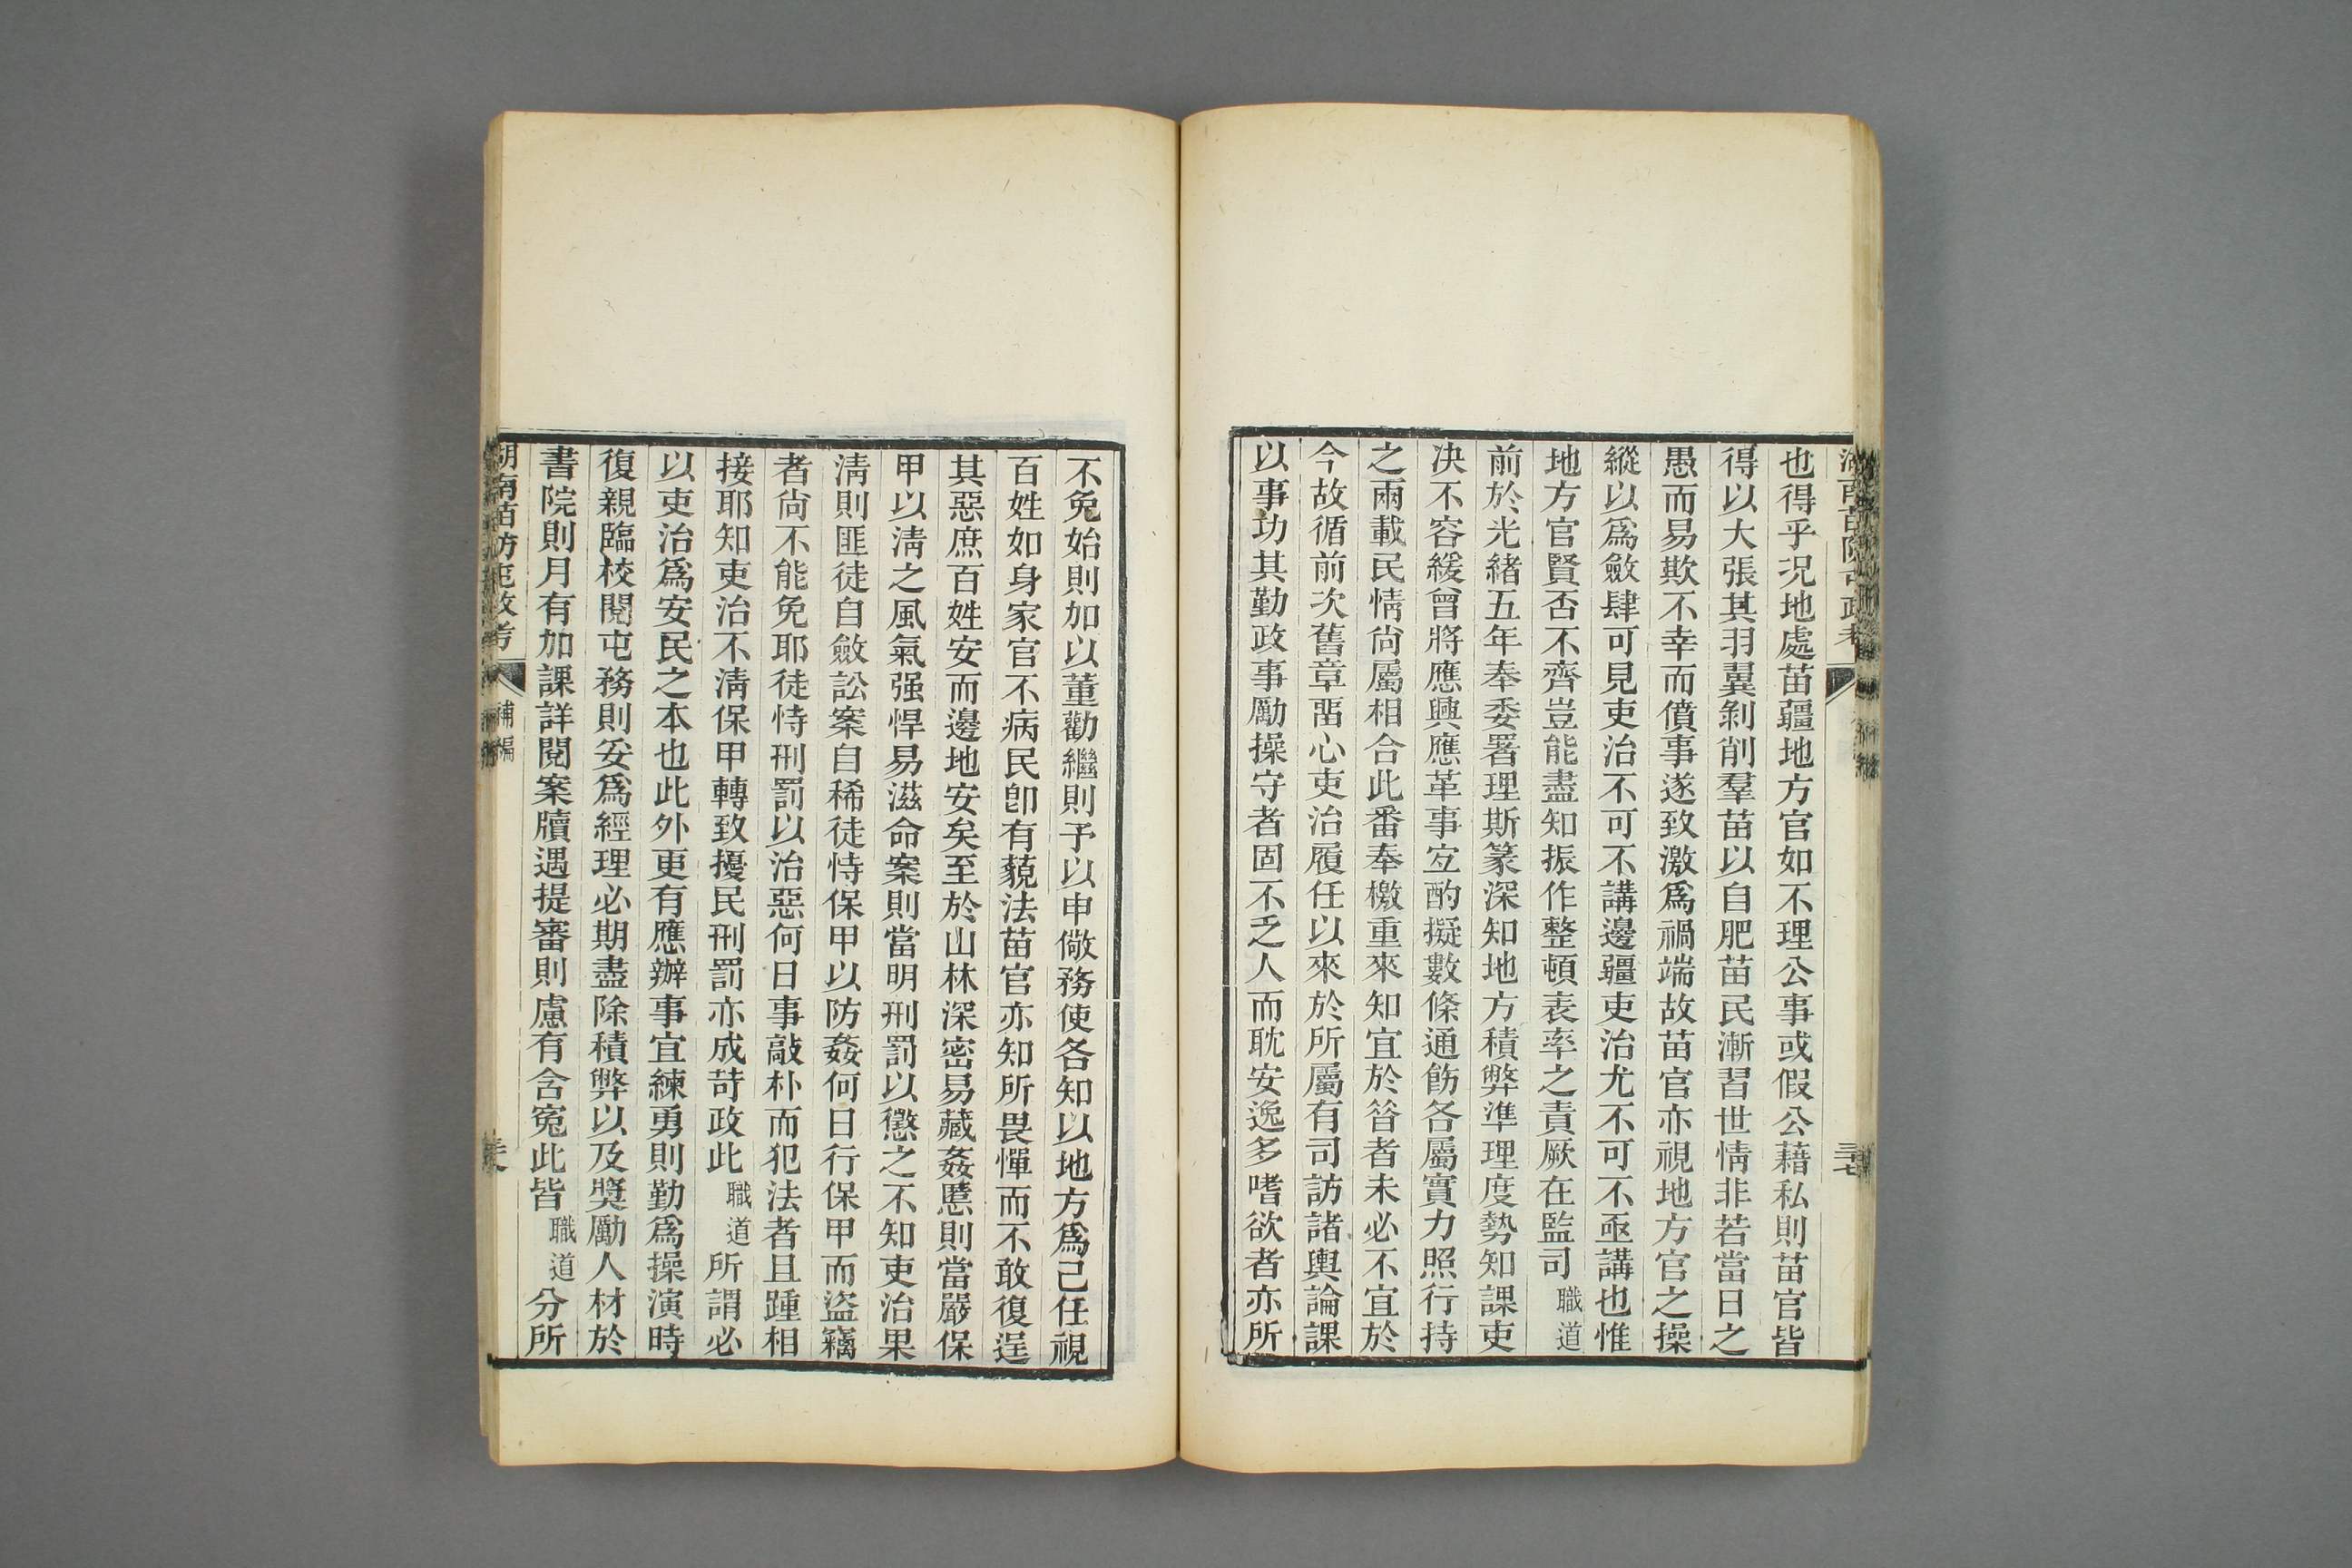 也得乎况地處苗疆地方官如不理公事或假公藉私則苗官皆
得以大張其羽翼剝削羣苗以自肥苗民漸習世情非若當日之
愚而易欺不幸而僨事遂致激爲禍端故苗官亦視地方官之操
縱以爲斂肆可見吏治不可不講邊疆吏治尤不可不亟講也惟
地方官賢否不齊豈能盡知振作整頓表率之責厥在監司職道
前於光緒五年奉委署理斯篆深知地方積弊準理度勢知課吏
決不容緩曾將應興應革事宜酌擬數條通飭各屬實力照行持
之兩載民情尙屬相合此番奉檄重來知宜於昝者未必不宜於
今故循前次舊章畱心吏治履任以來於所屬有司訪諸輿論課
以事功其勤政事勵操守者固不乏人而耽安逸多嗜欲者亦所
不免始則加以董勸繼則予以申儆務使各知以地方爲己任視
百姓如身家官不病民卽有藐法苗官亦知所畏憚而不敢復逞
其惡庶百姓安而邊地安矣至於山林深密易藏姦慝則當嚴保
甲以淸之風氣强悍易滋命案則當明刑罰以懲之不知吏治果
淸則匪徒自斂訟案自稀徒恃保甲以防姦何日行保甲而盜竊
者尙不能免耶徒恃刑罰以治惡何日事敲朴而犯法者且踵相
接耶知吏治不淸保甲轉致擾民刑罰亦成苛政此職道所謂必
以吏治爲安民之本也此外更有應辦事宜練勇則勤爲操演時
復親臨校閱屯務則妥爲經理必期盡除積弊以及奬勵人材於
書院則月有加課詳閱案牘遇提審則慮有含寃此皆職道分所
湖南苗防屯政考 補編